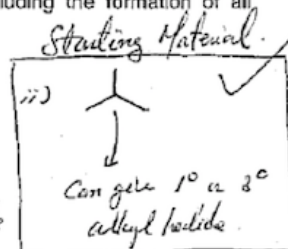 cluding the formation of all
Starting Material.
ii)
Can give 1° or 3°
alkyl